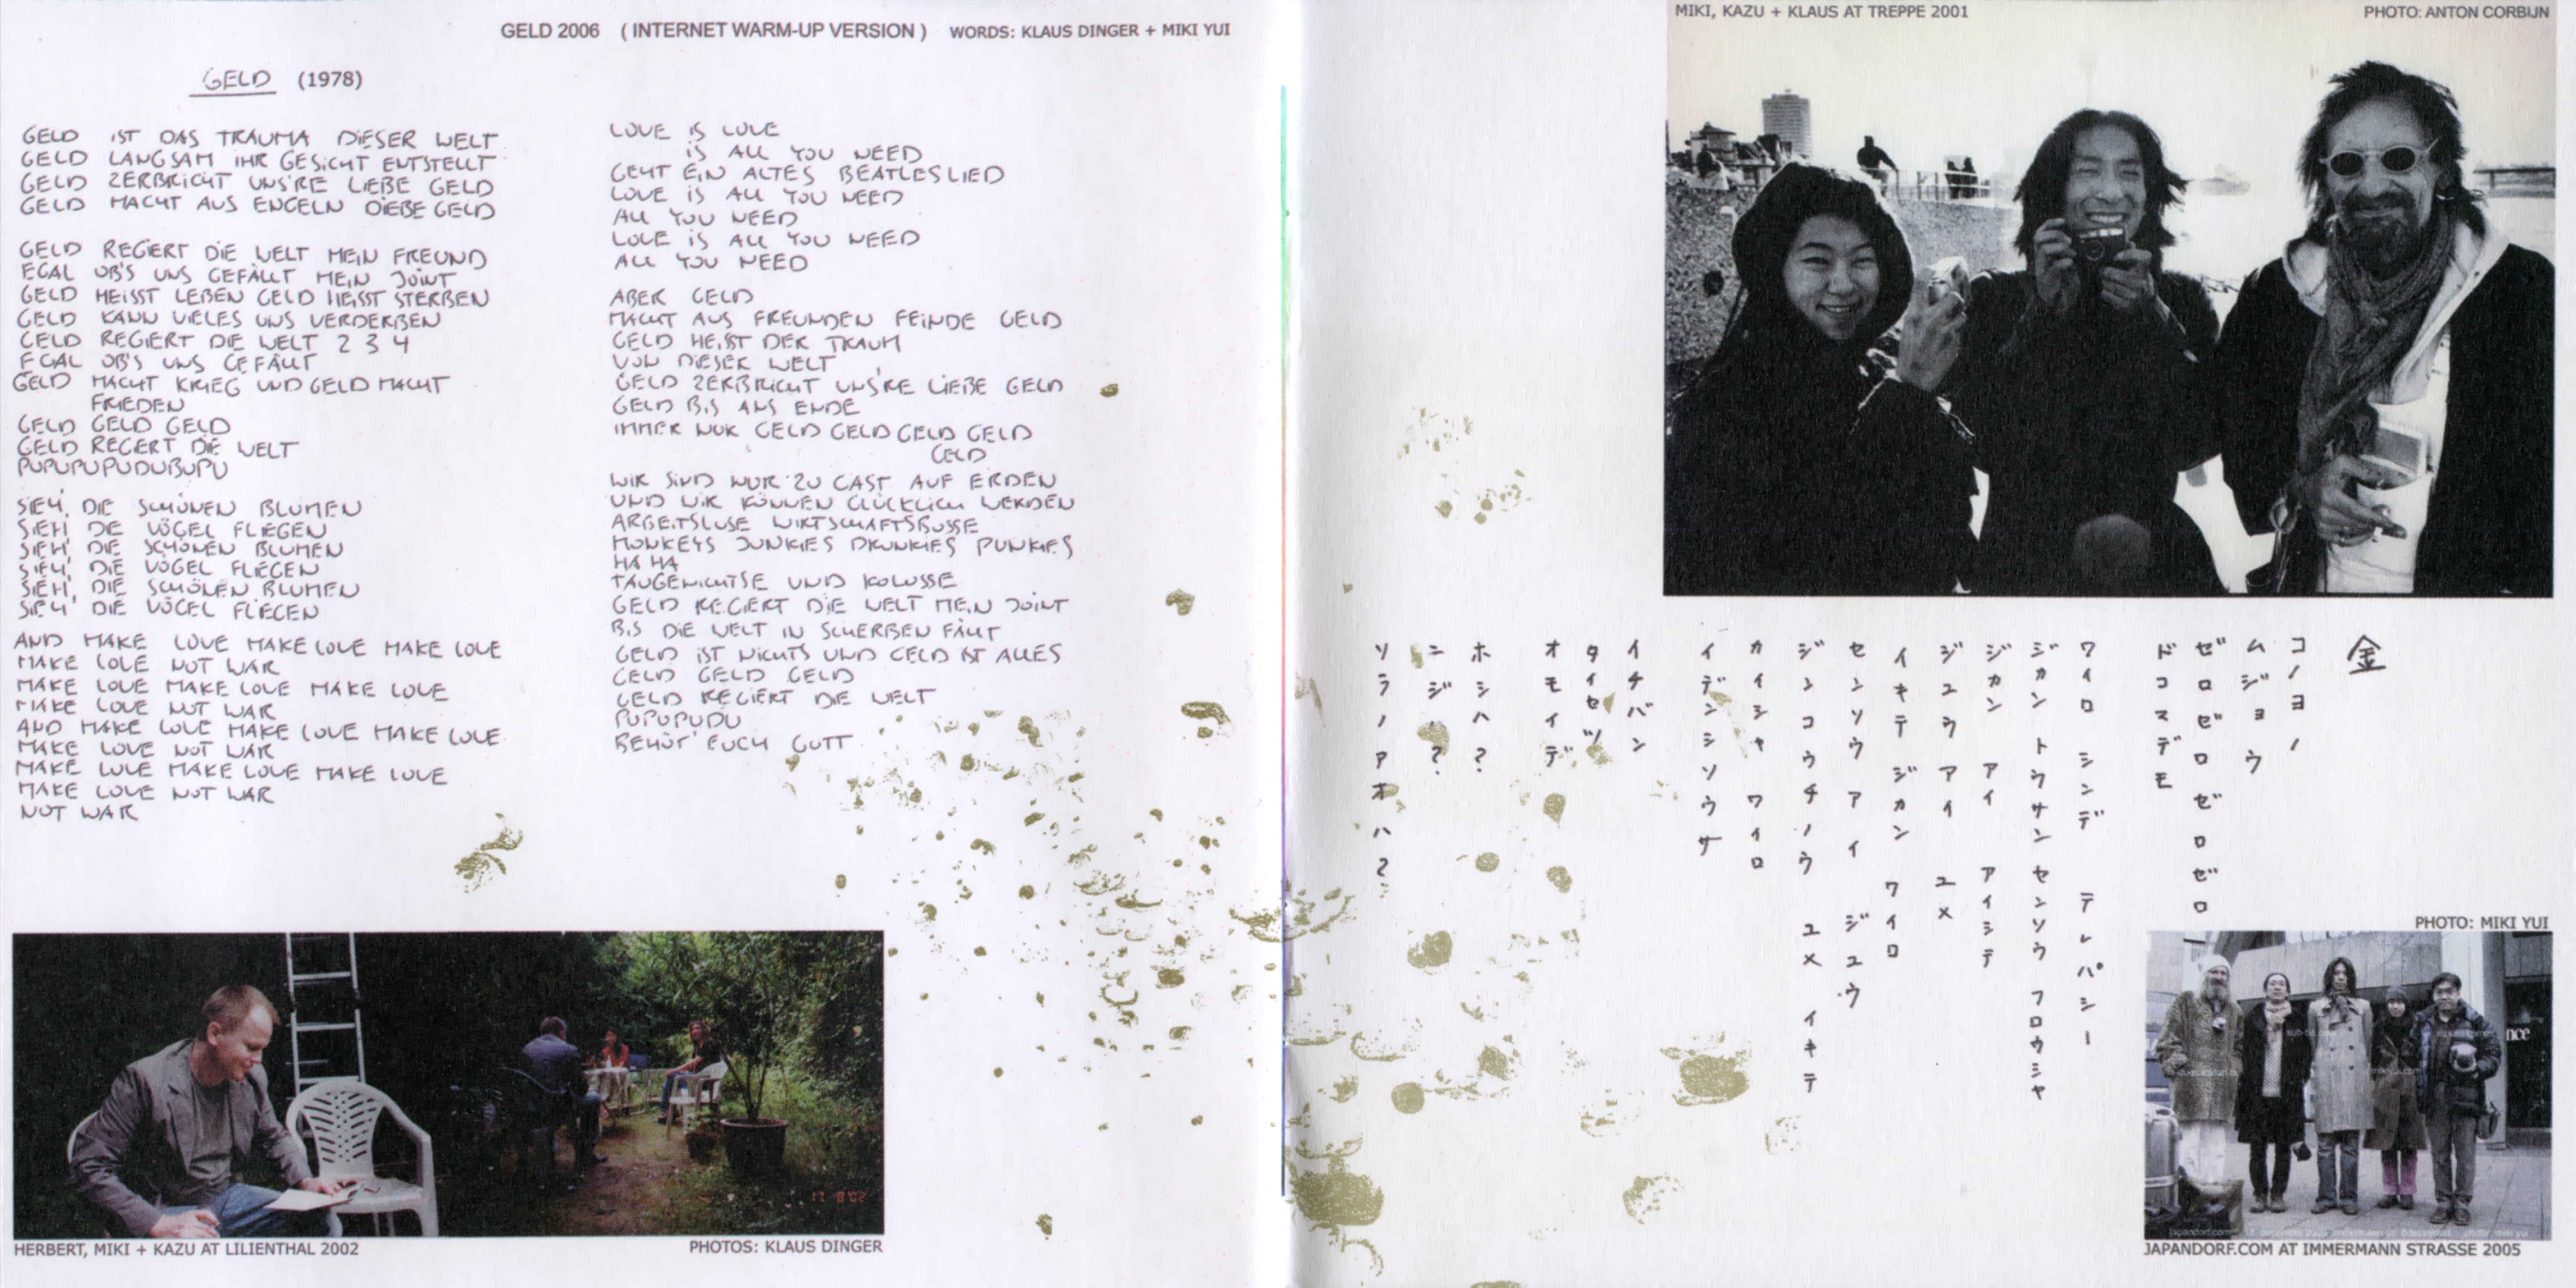 GELD 2006 ( INTERNET WARM-UP VERSION ) WORDS: KLAUS DINGER + MIKI YUI
GELD (1978)
GELD IST DAS TRAUMA DIESER WELT
GELD LANGSAM IHR GESICHT ENTSTELLT
GELD ZERBRICHT UNS'RE LIEBE GELD
GELD MACHT AUS ENGELN DIEBE GELD
GELD REGIERT DIE WELT MEIN FREUND
EGAL OB'S UNS GEFÄLLT MEIN JOINT
GELD HEISST LEBEN GELD HEISST STERBEN
GELD KANN VIELES UNS VERDERBEN
GELD REGIERT DIE WELT 2 3 4
EGAL OB'S UNS GEFÄLLT
GELD MACHT KRIEG UND GELD MACHT
FRIEDEN
GELD GELD GELD
GELD REGIERT DIE WELT
PUPUPUPUDUBUPU
SIEH' DIE SCHÖNEN BLUMEN
SIEH DIE VÖGEL FLIEGEN
SIEH' DIE SCHÖNEN BLUMEN
SIEH' DIE VÖGEL FLIEGEN
SIEH' DIE SCHÖNEN BLUMEN
SIEH' DIE VÖGEL FLIEGEN
AND MAKE LOVE MAKE LOVE MAKE LOVE
MAKE LOVE NOT WAR
MAKE LOVE MAKE LOVE MAKE LOVE
MAKE LOVE NOT WAR
AND MAKE LOVE MAKE LOVE MAKE LOVE
MAKE LOVE NOT WAR
MAKE LOVE MAKE LOVE MAKE LOVE
MAKE LOVE NOT WAR
NOT WAR
LOVE IS LOVE
IS ALL YOU NEED
GEHT EIN ALTES BEATLESLIED
LOVE IS ALL YOU NEED
ALL YOU NEED
LOVE IS ALL YOU NEED
ALL YOU NEED
ABER GELD
MACHT AUS FREUNDEN FEINDE GELD
GELD HEIßT DER TRAUM
VON DIESER WELT
GELD ZERBRICHT UNS'RE LIEBE GELD
GELD BIS ANS ENDE
IMMER NUR GELD GELD GELD GELD
GELD
WIR SIND NUR ZU GAST AUF ERDEN
UND WIR KÖNNEN GLÜCKLICH WERDEN
ARBEITSLOSE WIRTSCHAFTSBOSSE
MONKEYS JUNKIES DRUNKIES PUNKIES
HA HA
TAUGENICHTSE UND KOLOSSE
GELD REGIERT DIE WELT MEIN JOINT
BIS DIE WELT IN SCHERBEN FÄLLT
GELD IST NICHTS UND GELD IST ALLES
GELD GELD GELD
GELD REGIERT DIE WELT
PUPUPUDU
BEHÜT' EUCH GOTT
HERBERT, MIKI + KAZU AT LILIENTHAL 2002
PHOTOS: KLAUS DINGER
MIKI, KAZU + KLAUS AT TREPPE 2001
PHOTO: ANTON CORBIJN
金
コノヨノ
ムジョウ
ゼロゼロゼロゼロ
ドコマデモ
ワイロ シンデ テレパシー
ジカン トウサン センソウ フロウシャ
ジカン アイ アイシテ
ジユウ アイ ユメ
イキテ ジカン ワイロ
センソウ アイ ジユウ
ジンコウチノウ ユメ イキテ
カイシャ ワイロ
イデンシソウサ
イチバン
タイセツ
オモイデ
ホシハ?
ニジハ?
ソラノアオハ?
PHOTO: MIKI YUI
nce
JAPANDORF.COM AT IMMERMANN STRASSE 2005